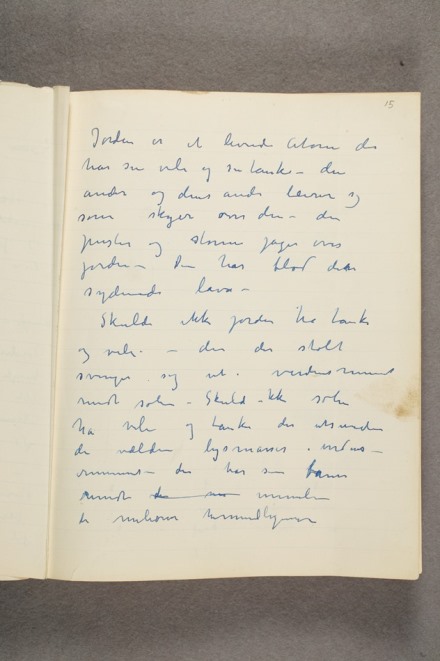 15
Jorden er et levende Atom der
har sin vilje og sin tanke – den
ånder og dens ånde lægger sig
som skyer over den – den
puster og storme jager over
jorden – Den har blod den
sydende lava –
Skulde ikke jorden ha tanke
og vilje – den der stolt
svinger sig ut i verdensrummet
rundt solen – Skuld ikke solen
ha vilje og tanke der utsender
de vældige lysmasser i verdens-
rummet – der har sin bane
rundt mellem
de milioner himmellegemer